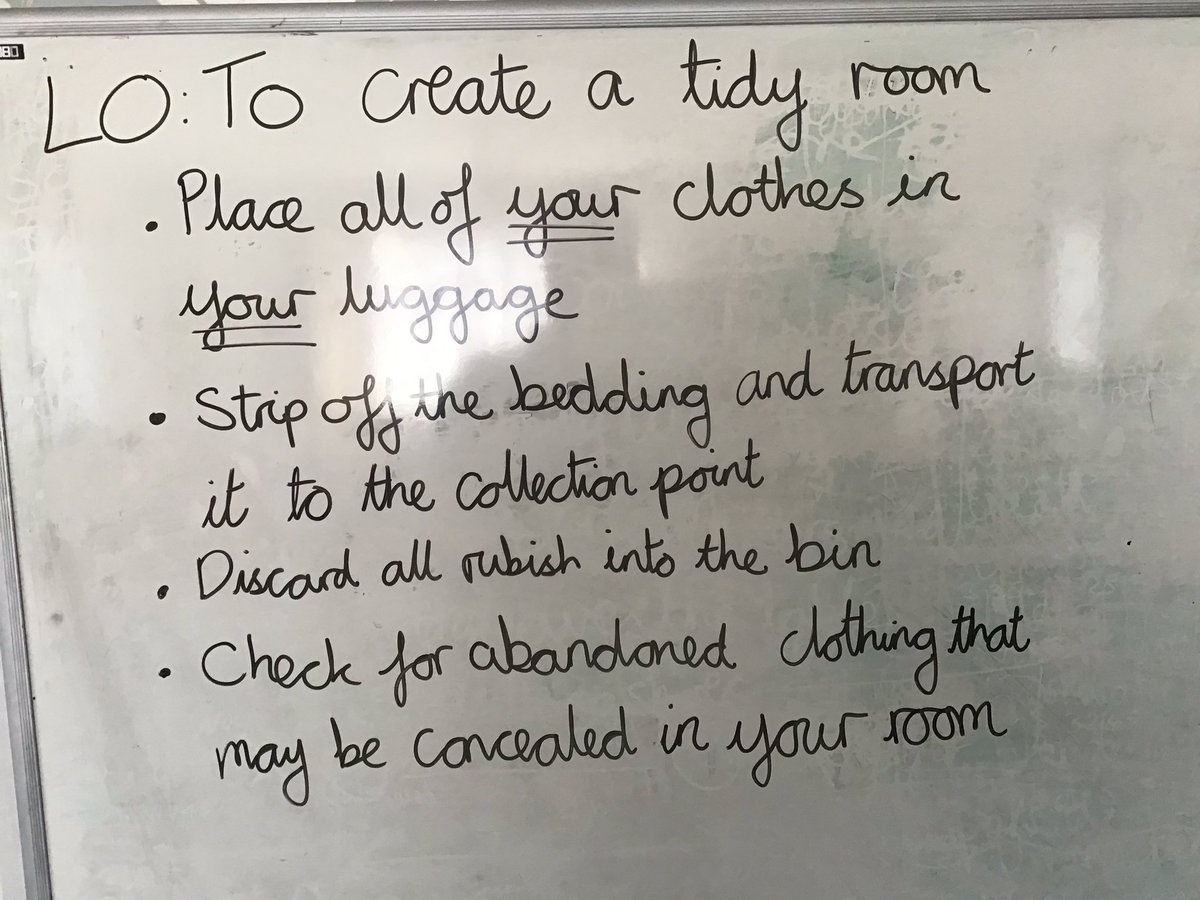 LO: To create a tidy room
• Place all of your clothes in
your luggage
• Strip off the bedding and transport
it to the collection point
• Discard all rubish into the bin
• Check for abandoned clothing that
may be concealed in your room